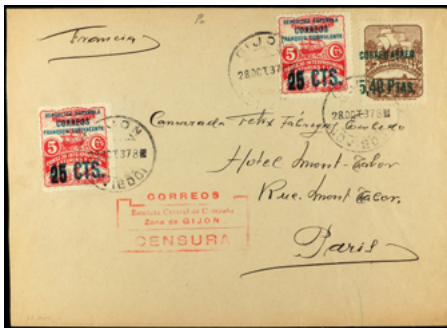 Francia
REPUBLICA ESPAÑOLA
CORREOS
FRANQUEO EQUIVALENTE
5 Cs
25 CTS.
GIJON
28.OCT.37
CORREO AEREO
5,40 PTAS.
28.OCT.378
REPUBLICA ESPAÑOLA
CORREOS
FRANQUEO EQUIVALENTE
5 Cs
25 CTS.
Camarada Felix Fábregas
Hotel Mont-Tabor
Rue. Mont Tabor.
Paris
CORREOS
Estafeta Central de Campaña
Zona de GIJON
CENSURA